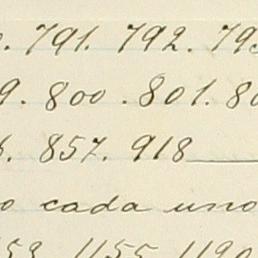 . 791. 792. 793
9. 800. 801. 80
6. 857. 918
o cada uno
58. 1155. 1190